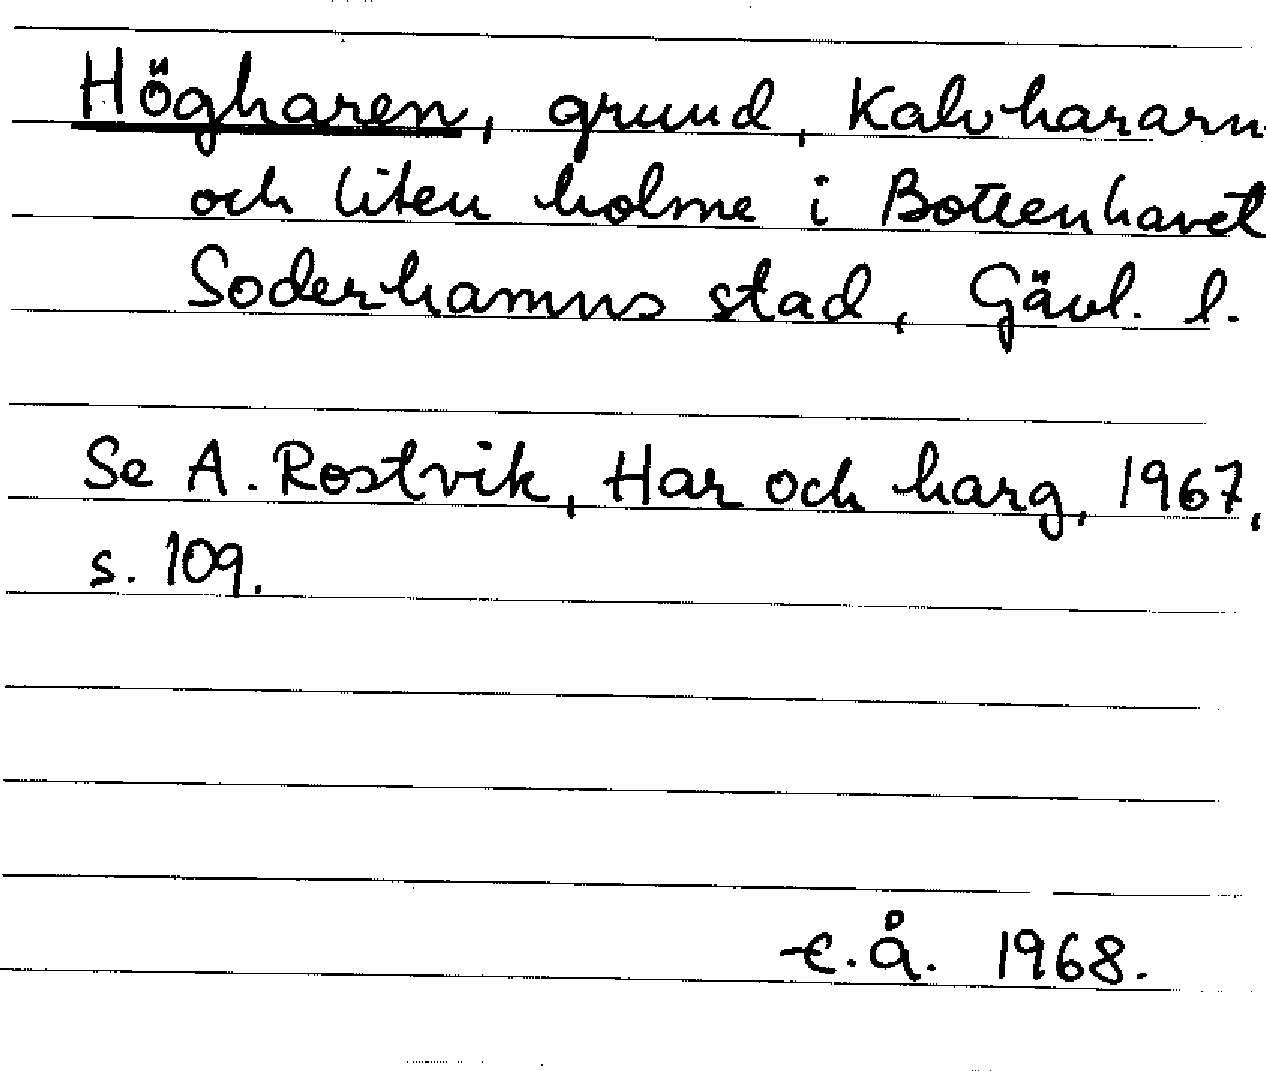 Högharen, grund, Kalvhararn
och liten holme i Bottenhavet
Söderhamns stad, Gävl. l.
Se A. Rostvik, Har och harg, 1967,
s. 109.
E.Å. 1968.